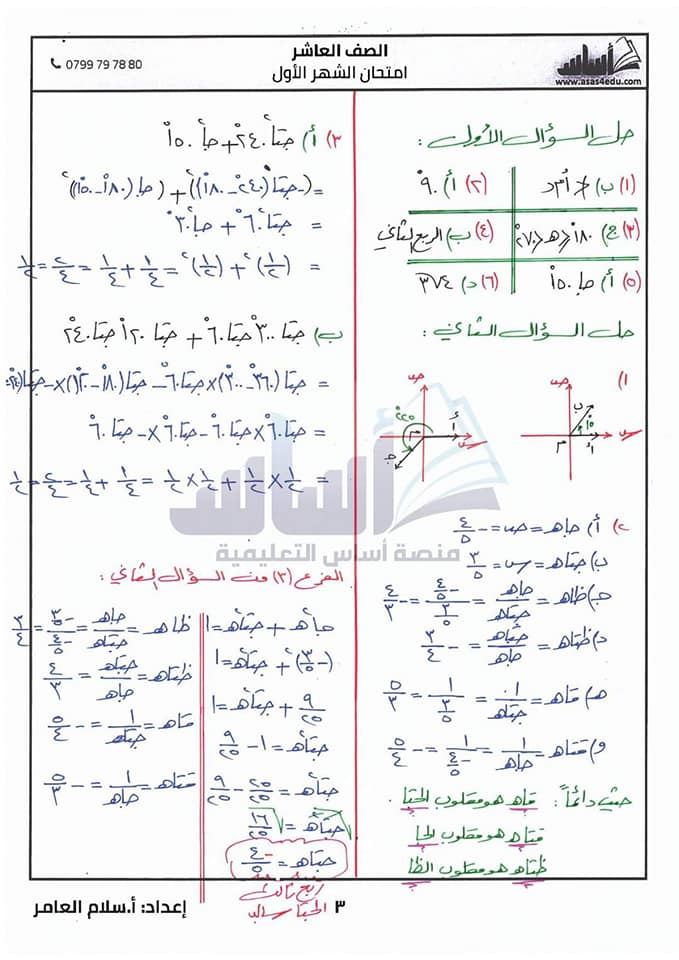 الصف العاشر
امتحان الشهر الأول
0799 79 78 80
أساس
www.asas4edu.com
حل السؤال الأول :
١) ب) ≠ أ٣د
٢) أ) ٩٠°
٣) ج) ١٨٠° > هـ > ٢٧٠°
٤) ب) الربع الثاني
٥) أ) جا١٥٠°
٦) د) ٣٧٤
حل السؤال الثاني :
١)
ص
س
ب
١٥٠°
م
أ
ص
٢٢٥°
أ
م
س
جـ
٢) أ) جاهـ = ص = -٤/٥
ب) جتاهـ = س = ٣/٥
جـ) ظاهـ = جاهـ/جتاهـ = (-٤/٥)/(٣/٥) = -٤/٣
د) ظتاهـ = جتاهـ/جاهـ = -٣/٤
هـ) قاهـ = ١/جتاهـ = ١/(٣/٥) = ٥/٣
و) قتاهـ = ١/جاهـ = ١/(-٤/٥) = -٥/٤
حيث دائماً : قاهـ هو مقلوب الجتا .
قتاهـ هو مقلوب الجا
ظتاهـ هو مقلوب الظا
٣) أ) جتا²٢٤٠° + جا²١٥٠°
= (-جتا(٢٤٠° - ١٨٠°))² + (جا(١٨٠° - ١٥٠°))²
= جتا²٦٠° + جا²٣٠°
= (١/٢)² + (١/٢)² = ١/٤ + ١/٤ = ٢/٤ = ١/٢
ب) جتا٣٠٠° جتا٦٠° + جتا١٢٠° جتا٢٤٠°
= جتا(٣٦٠° - ٣٠٠°) × جتا٦٠° - جتا(١٨٠° - ١٢٠°) × -جتا(٢٤٠°
= جتا٦٠° × جتا٦٠° - جتا٦٠° × -جتا٦٠°
= ١/٢ × ١/٢ + ١/٢ × ١/٢ = ١/٤ + ١/٤ = ٢/٤ = ١/٢
منصة أساس التعليمية
الفرع (٣) من السؤال الثاني :
جا²هـ + جتا²هـ = ١
(-٣/٥)² + جتا²هـ = ١
٩/٢٥ + جتا²هـ = ١
جتا²هـ = ١ - ٩/٢٥
جتا²هـ = ٢٥/٢٥ - ٩/٢٥
√جتا²هـ = √١٦/٢٥
جتاهـ = -٤/٥
ربع ثالث
الجتا سالب
ظاهـ = جاهـ/جتاهـ = (-٣/٥)/(-٤/٥) = ٣/٤
ظتاهـ = جتاهـ/جاهـ = ٤/٣
قاهـ = ١/جتاهـ = -٥/٤
قتاهـ = ١/جاهـ = -٥/٣
٣
إعداد: أ.سلام العامر